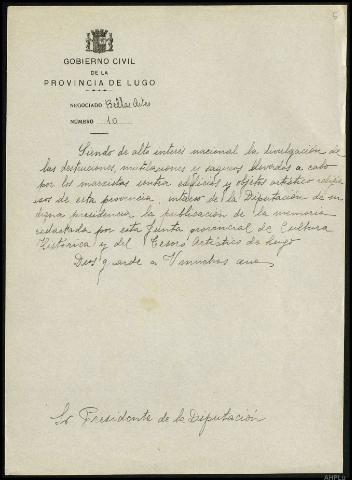 5
GOBIERNO CIVIL
DE LA
PROVINCIA DE LUGO
NEGOCIADO Bellas Artes
NÚMERO 10
Siendo de alto interés nacional la divulgación de
las destrucciones, mutilaciones y saqueos llevados a cabo
por los marxistas contra edificios y objetos artístico religio
sos de esta provincia, intereso de la Diputación de su
digna presidencia, la publicación de la memoria
redactada por esta Junta provincial de Cultura
Histórica y del Tesoro Artístico de Lugo
Dios g arde a V muchos
Sr Presidente de la Diputación
AHPLu